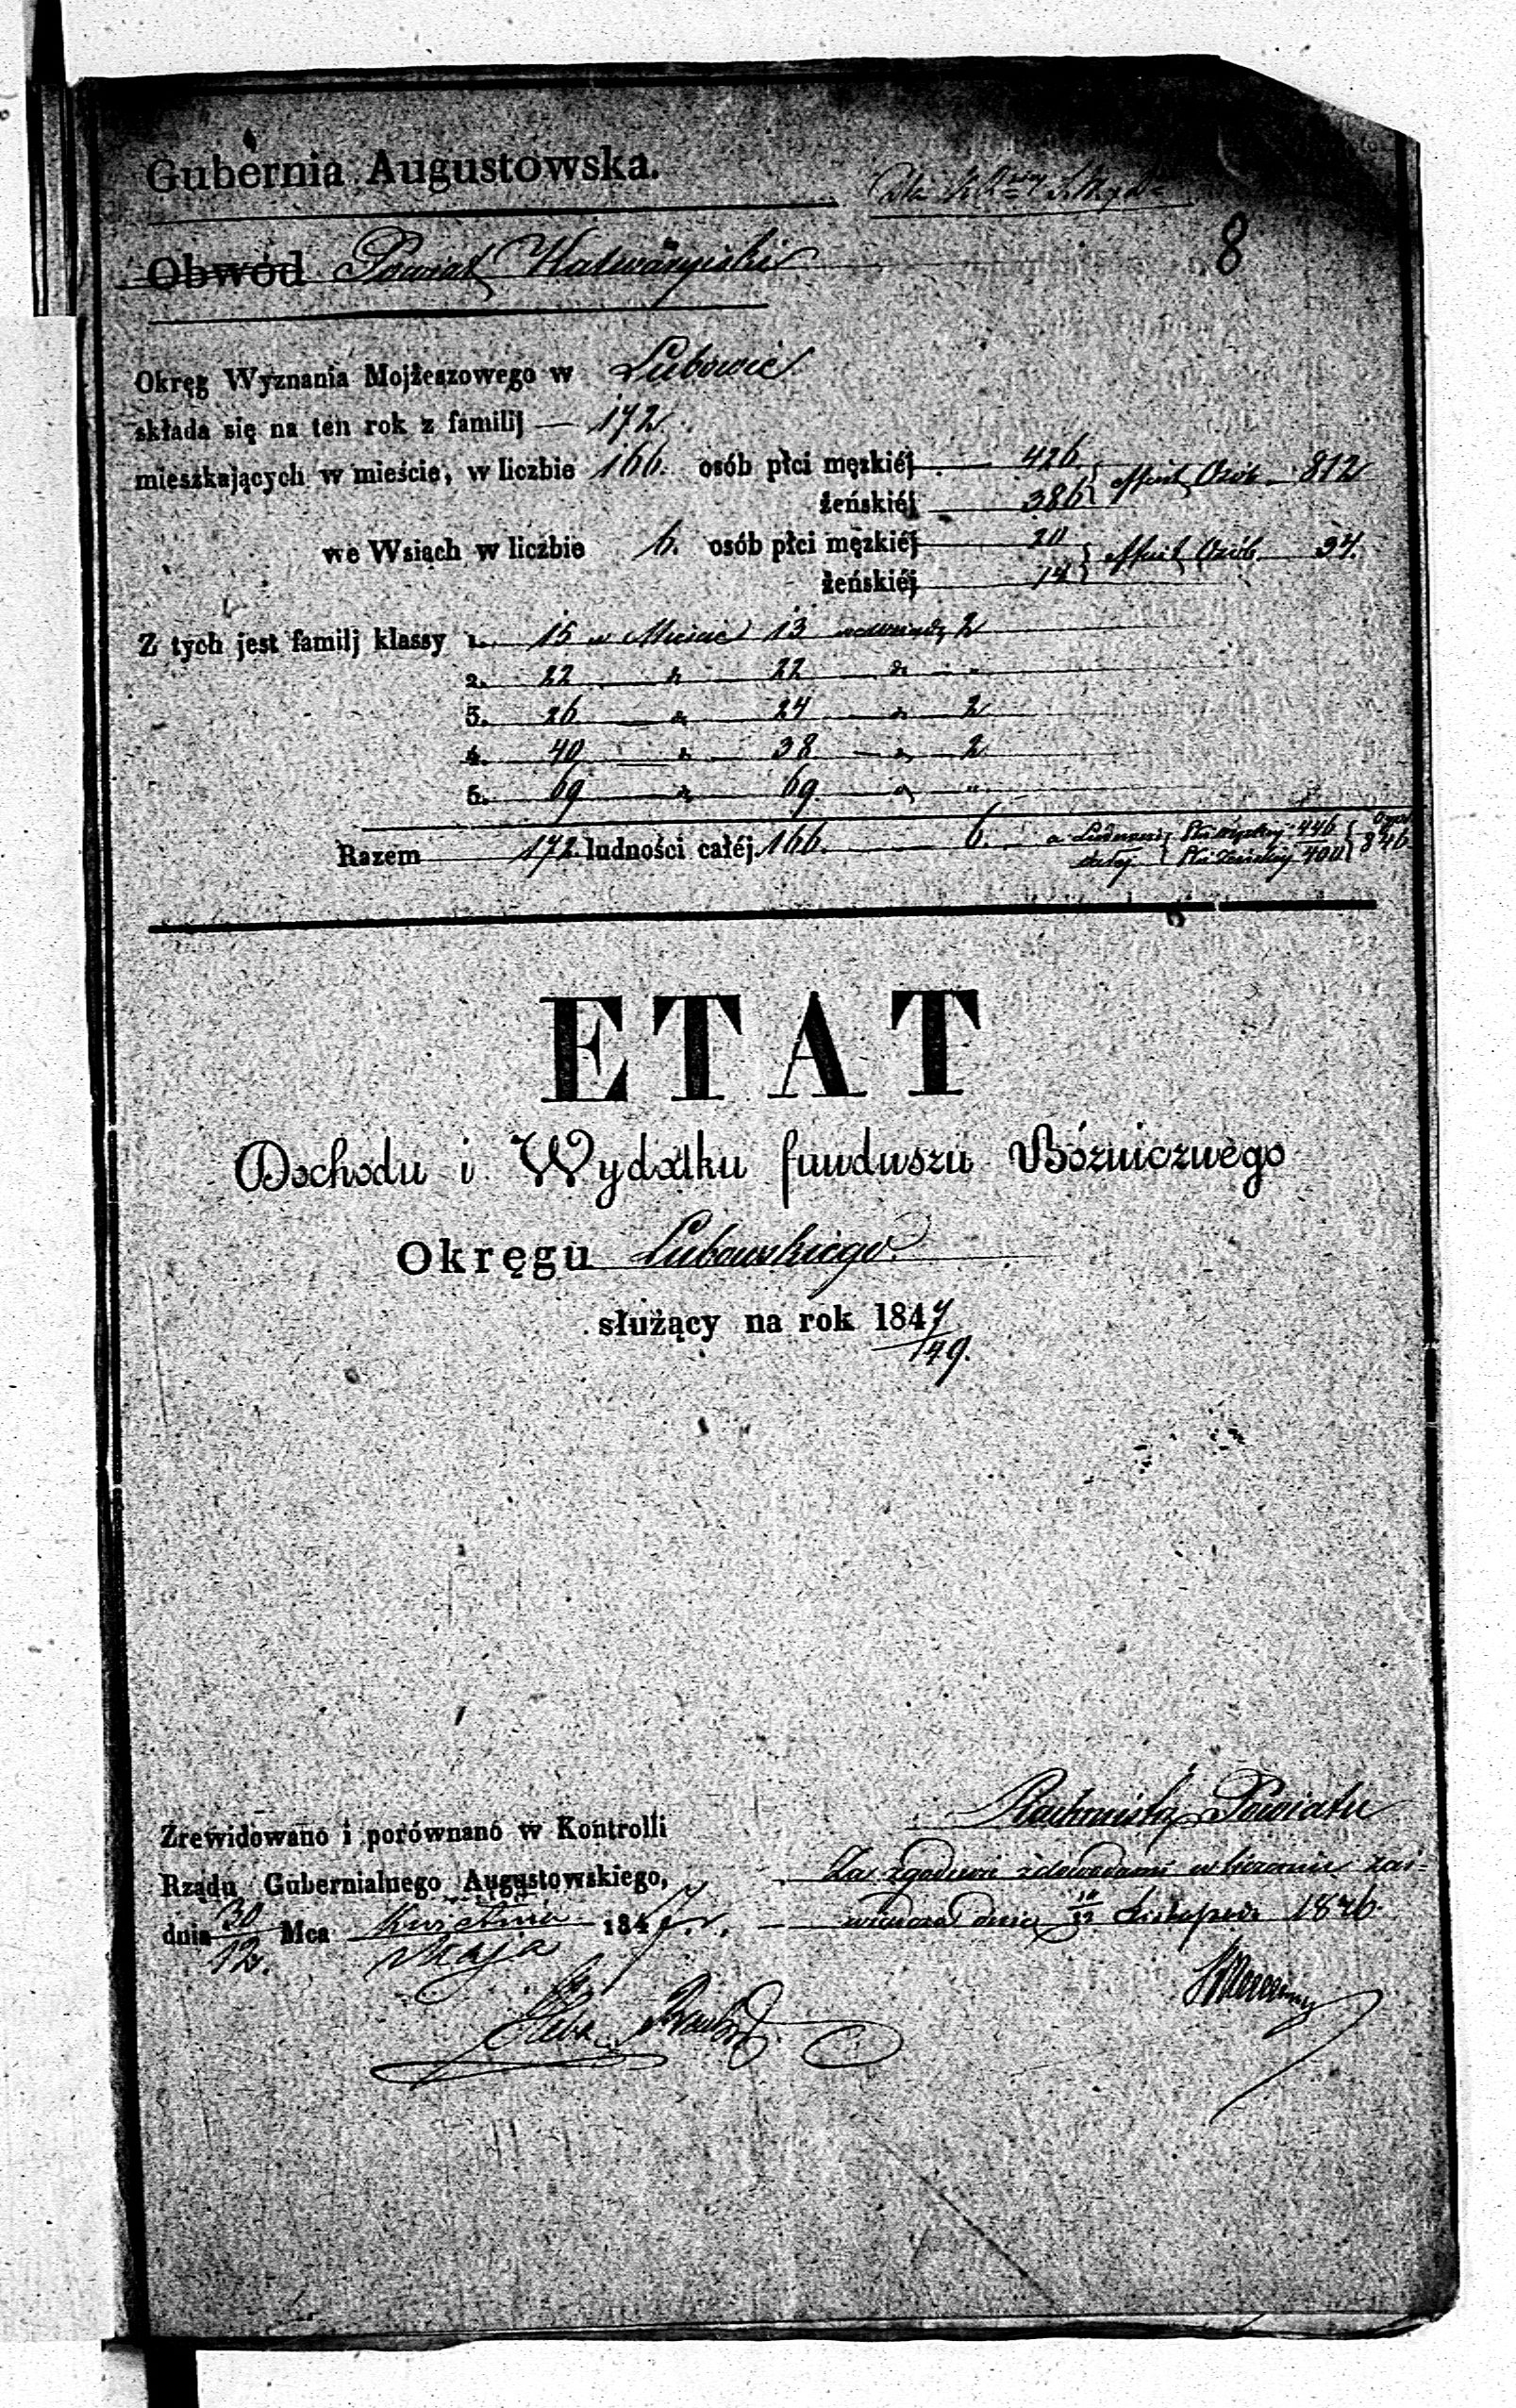 Gubernia Augustowska.
8
Obwód Powiat Kalwaryiski
Okręg Wyznania Mojżeszowego w Lubowie
składa się na ten rok z familij — 172.
mieszkających w mieście, w liczbie 166. osób płci męzkiéj 426
żeńskiéj 386 Osób 812
we Wsiach w liczbie 6. osób płci męzkiéj 20
żeńskiéj 14 Osób 34.
Z tych jest familij klassy 1. 15 w Mieście 13 2
2. 22 " 22 " "
3. 26 " 24 " 2
4. 40 " 38 " 2
5. 69 " 69 " "
Razem 172 ludności całéj 166. 6. a Ludności Płci męzkiej 446
całej Płci żeńskiej 400 846
ETAT
Dochodu i Wydatku funduszu Bóżnicznego
Okręgu Lubowskiego
służący na rok 1847/49.
Rachmistrz Powiatu
Zrewidowano i porównano w Kontrolli
Za zgodność z dowodami
Rządu Gubernialnego Augustowskiego,
dnia 30/12. Mca Kwietnia/Maja 1847 r.
dnia 10/22 Listopada 1846.